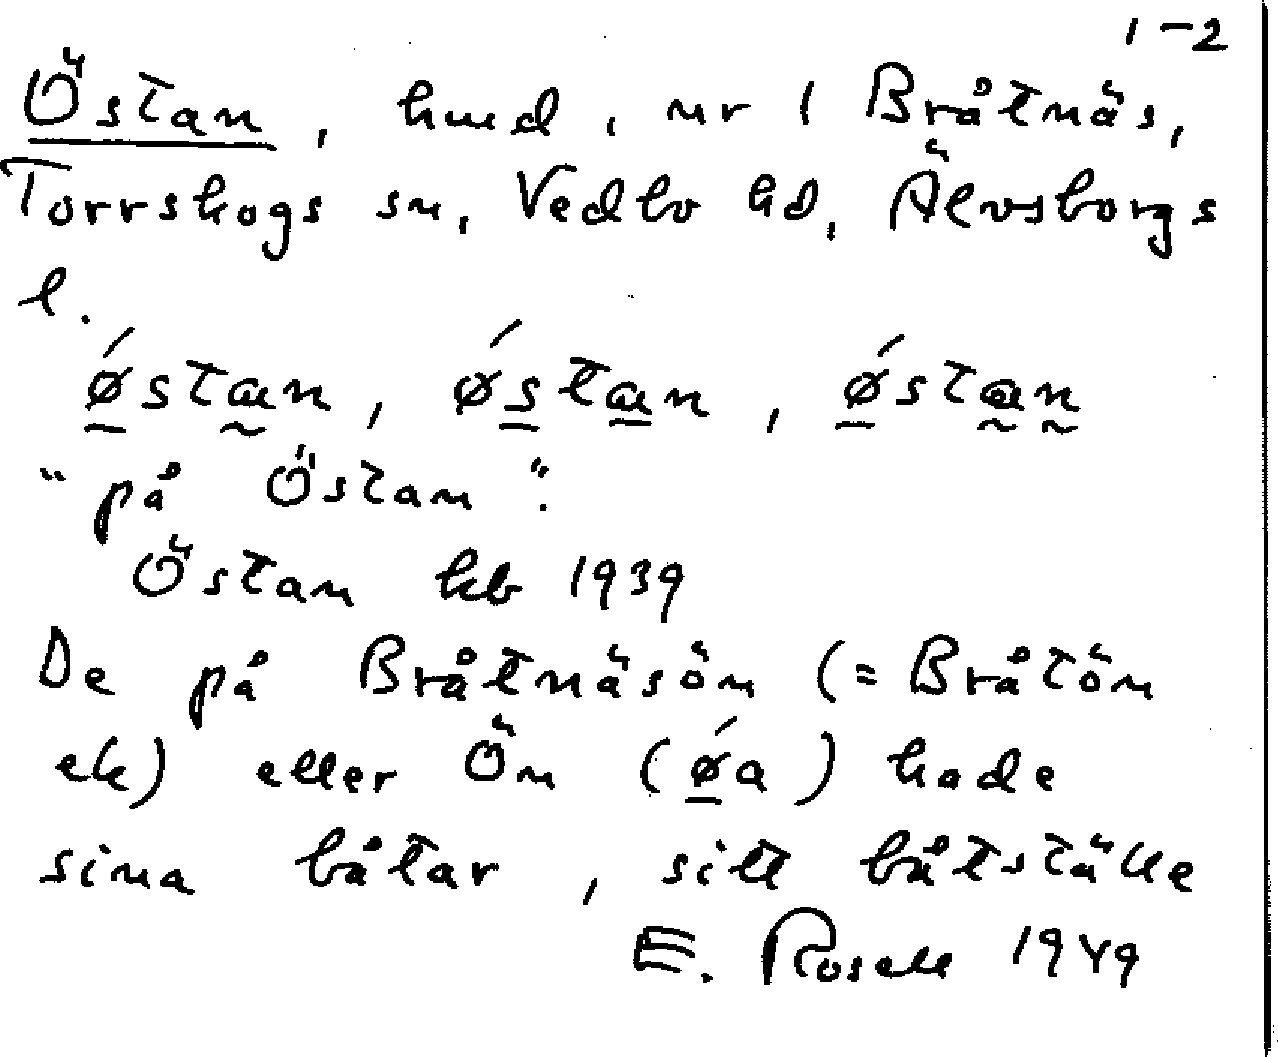 1-2
Östan, hmd, nr 1 Bråtnäs,
Torrskogs sn, Vedbo hd, Älvsborgs
l.
ǿstan, ǿstan, ǿstan
"på Östan".
Östan kb 1939
De på Bråtnäsön (= Bråtön
ek) eller Ön (ǿa) hade
sina båtar, sitt båtställe
E. Rosell 1949